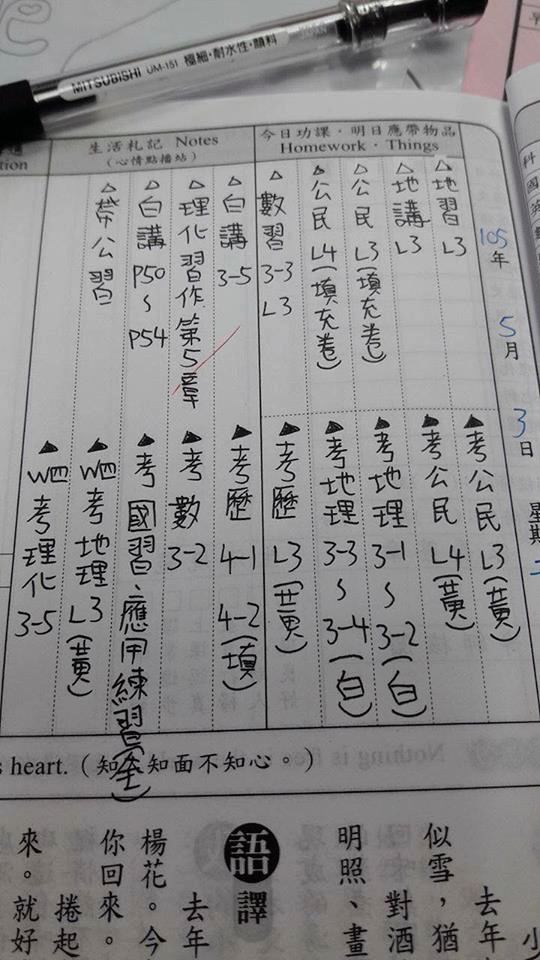 MITSUBISHI UM-151 極細・耐水性・顔料
tion
生活札記 Notes
(心情點播站)
今日功課・明日應帶物品
Homework・Things
105年5月3日 星期二
△地習 L3
△地講 L3
△公民 L3(填充卷)
△公民 L4(填充卷)
△數習 3-3 L3
△白講 3-5
△理化習作 第5章
△白講 P50~P54
△帶公習
▲考公民 L3(黃)
▲考公民 L4(黃)
▲考地理 3-1~3-2(白)
▲考地理 3-3~3-4(白)
▲考歷 L3(黃)
▲考歷 4-1 4-2(填)
▲考數 3-2
▲考國習、應用練習(全)
▲W四考地理 L3(黃)
▲W四考理化 3-5
s heart.(知人知面不知心。)
語譯
去年
似雪,猶
對酒
明照、畫
去年
楊花。今
你回來。
捲起
來。就好